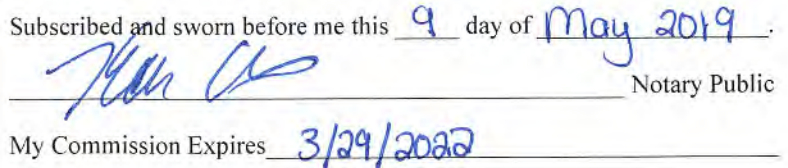 Subscribed and sworn before me this 9 day of May 2019.
Notary Public
My Commission Expires 3/29/2022